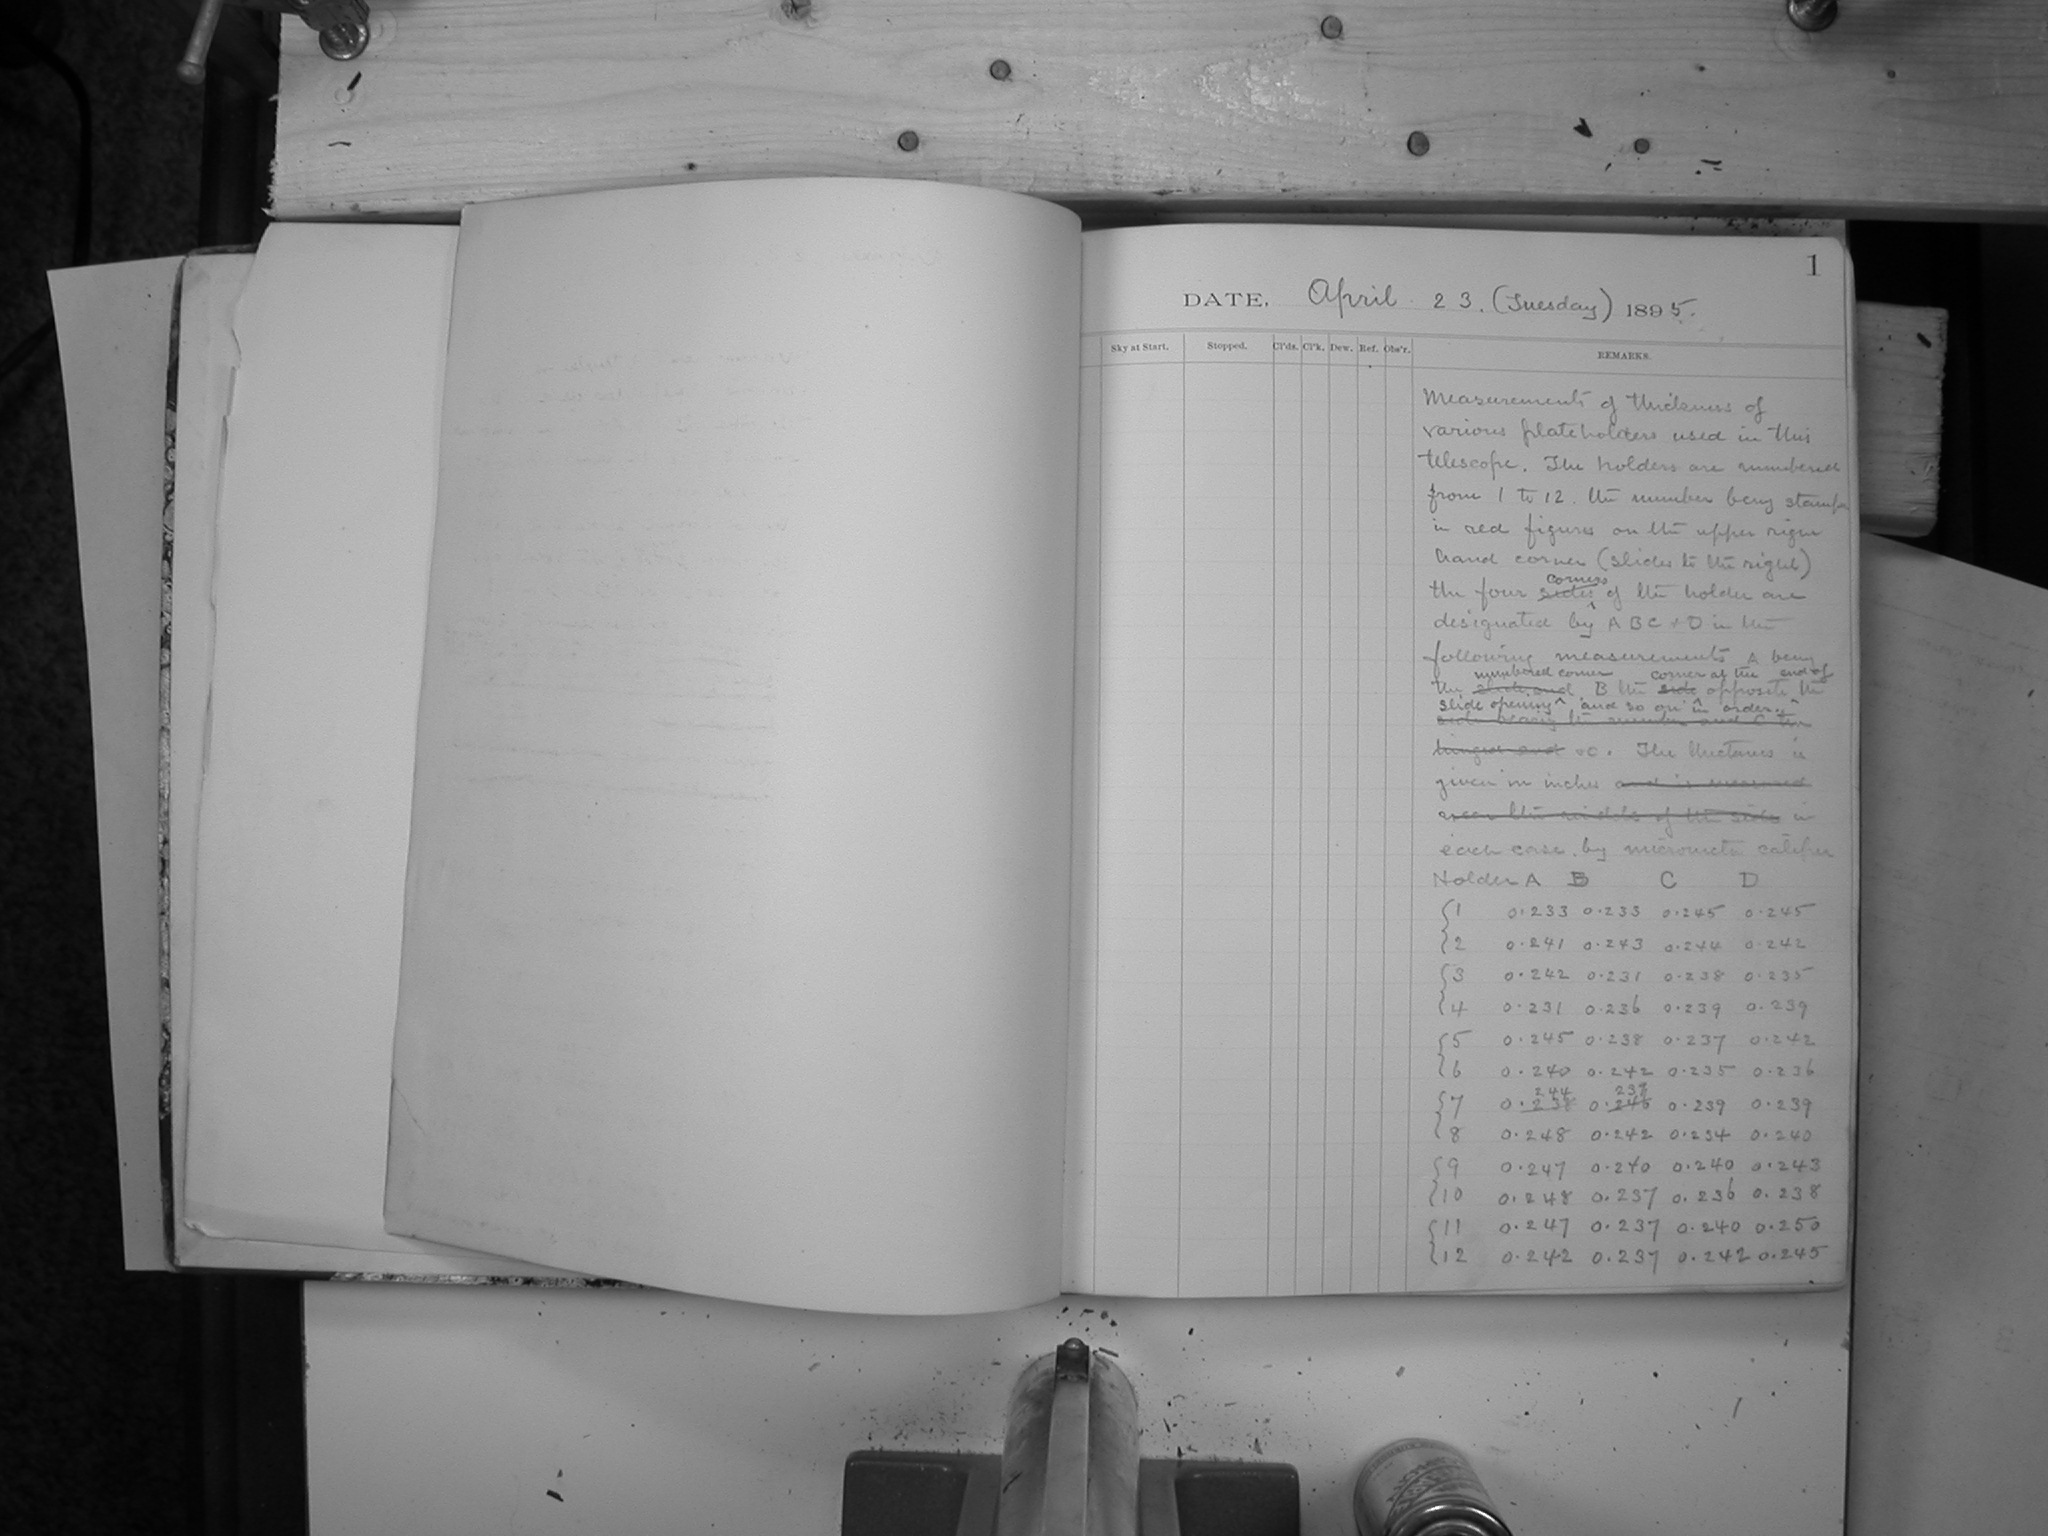 1
DATE. April 23. (Tuesday) 1895.
Sky at Start. Stopped. Cl'ds. Cl'k. Dew. Ref. Obs'r. REMARKS.
Measurements of thickness of
various plateholders used in this
telescope. The holders are numbered
from 1 to 12. the number being
in red figures on the upper right
hand corner (slides to the right)
corners
the four sides of the holder are
designated by A B C + D in the
following measurements A being
numbered corner corner at the end of
the B the side opposite the
slide opening and so on in order.
side the number and C the
hinged end so. The thickness is
given in inches and is measured
near the middle of the side in
each case. by micrometer caliper
Holder A B C D
1 0.233 0.233 0.245 0.245
2 0.241 0.243 0.244 0.242
3 0.242 0.231 0.238 0.235
4 0.231 0.236 0.239 0.239
5 0.245 0.238 0.237 0.242
6 0.240 0.242 0.235 0.236
244
7 0.238 0.246 0.239 0.239
8 0.248 0.242 0.234 0.240
9 0.247 0.240 0.240 0.243
10 0.248 0.237 0.236 0.238
11 0.247 0.237 0.240 0.250
12 0.242 0.237 0.242 0.245